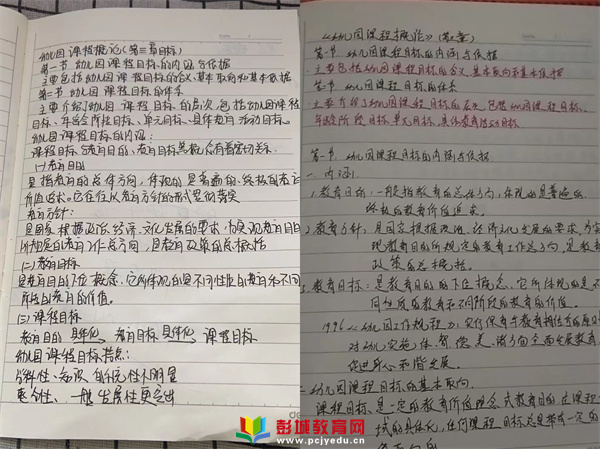 幼儿园课程概论(第三章目标)
第一节 幼儿园课程目标的内涵与依据
主要包括幼儿园课程目标的含义、基本取向和基本依据
第二节 幼儿园课程目标的体系
主要介绍幼儿园课程目标的层次,包括幼儿园课程
目标、年龄阶段目标、单元目标、具体教育活动目标。
幼儿园课程目标的内涵:
课程目标与教育目的、教育目标等概念有着密切关系。
(一)教育目的
是指教育的总体方向,体现的是普遍的、终极的教育
价值追求。它往往以教育方针的形式
教育方针:
是国家根据政治、经济、文化发展的要求,为实现教育目的
所规定的教育工作总方向,是教育政策的总概括
(二)教育目标
是教育目的的下位概念,它所体现的是不同性质的教育和不同
阶段的教育的价值。
(三)课程目标
教育目的 具体化 教育目标 具体化 课程目标
幼儿园课程目标特点:
整合性、一般发展性更突出
《幼儿园课程概论》(第三章)
第一节 幼儿园课程目标的内涵与依据
主要包括幼儿园课程目标的含义、基本取向和基本依据
第二节 幼儿园课程目标的体系
主要介绍了幼儿园课程目标的层次,包括幼儿园课程目标、
年龄阶段目标、单元目标、具体教育活动目标
第一节 幼儿园课程目标的内涵与依据
一、内涵
1.教育目的:一般指教育的总体方向,体现的是普遍的、
终极的教育价值追求。
2.教育方针:是国家根据政治、经济、文化发展的要求,为实
现教育目的所规定的教育工作总方向,是教育
政策的总概括。
教育目标:是教育目的的下位概念,它所体现的是不
同性质的教育和不同阶段的教育的价值。
1996《幼儿园工作规程》:实行保育与教育相结合的原则
对幼儿实施体、智、德、美诸方面全面发展教育,
促进身心和谐发展。
二、幼儿园课程目标的基本取向
课程目标是一定的教育价值观念或教育目的在课程
的具体化,任何课程目标总是带有一定的
彭城教育网
www.pcjyedu.cn